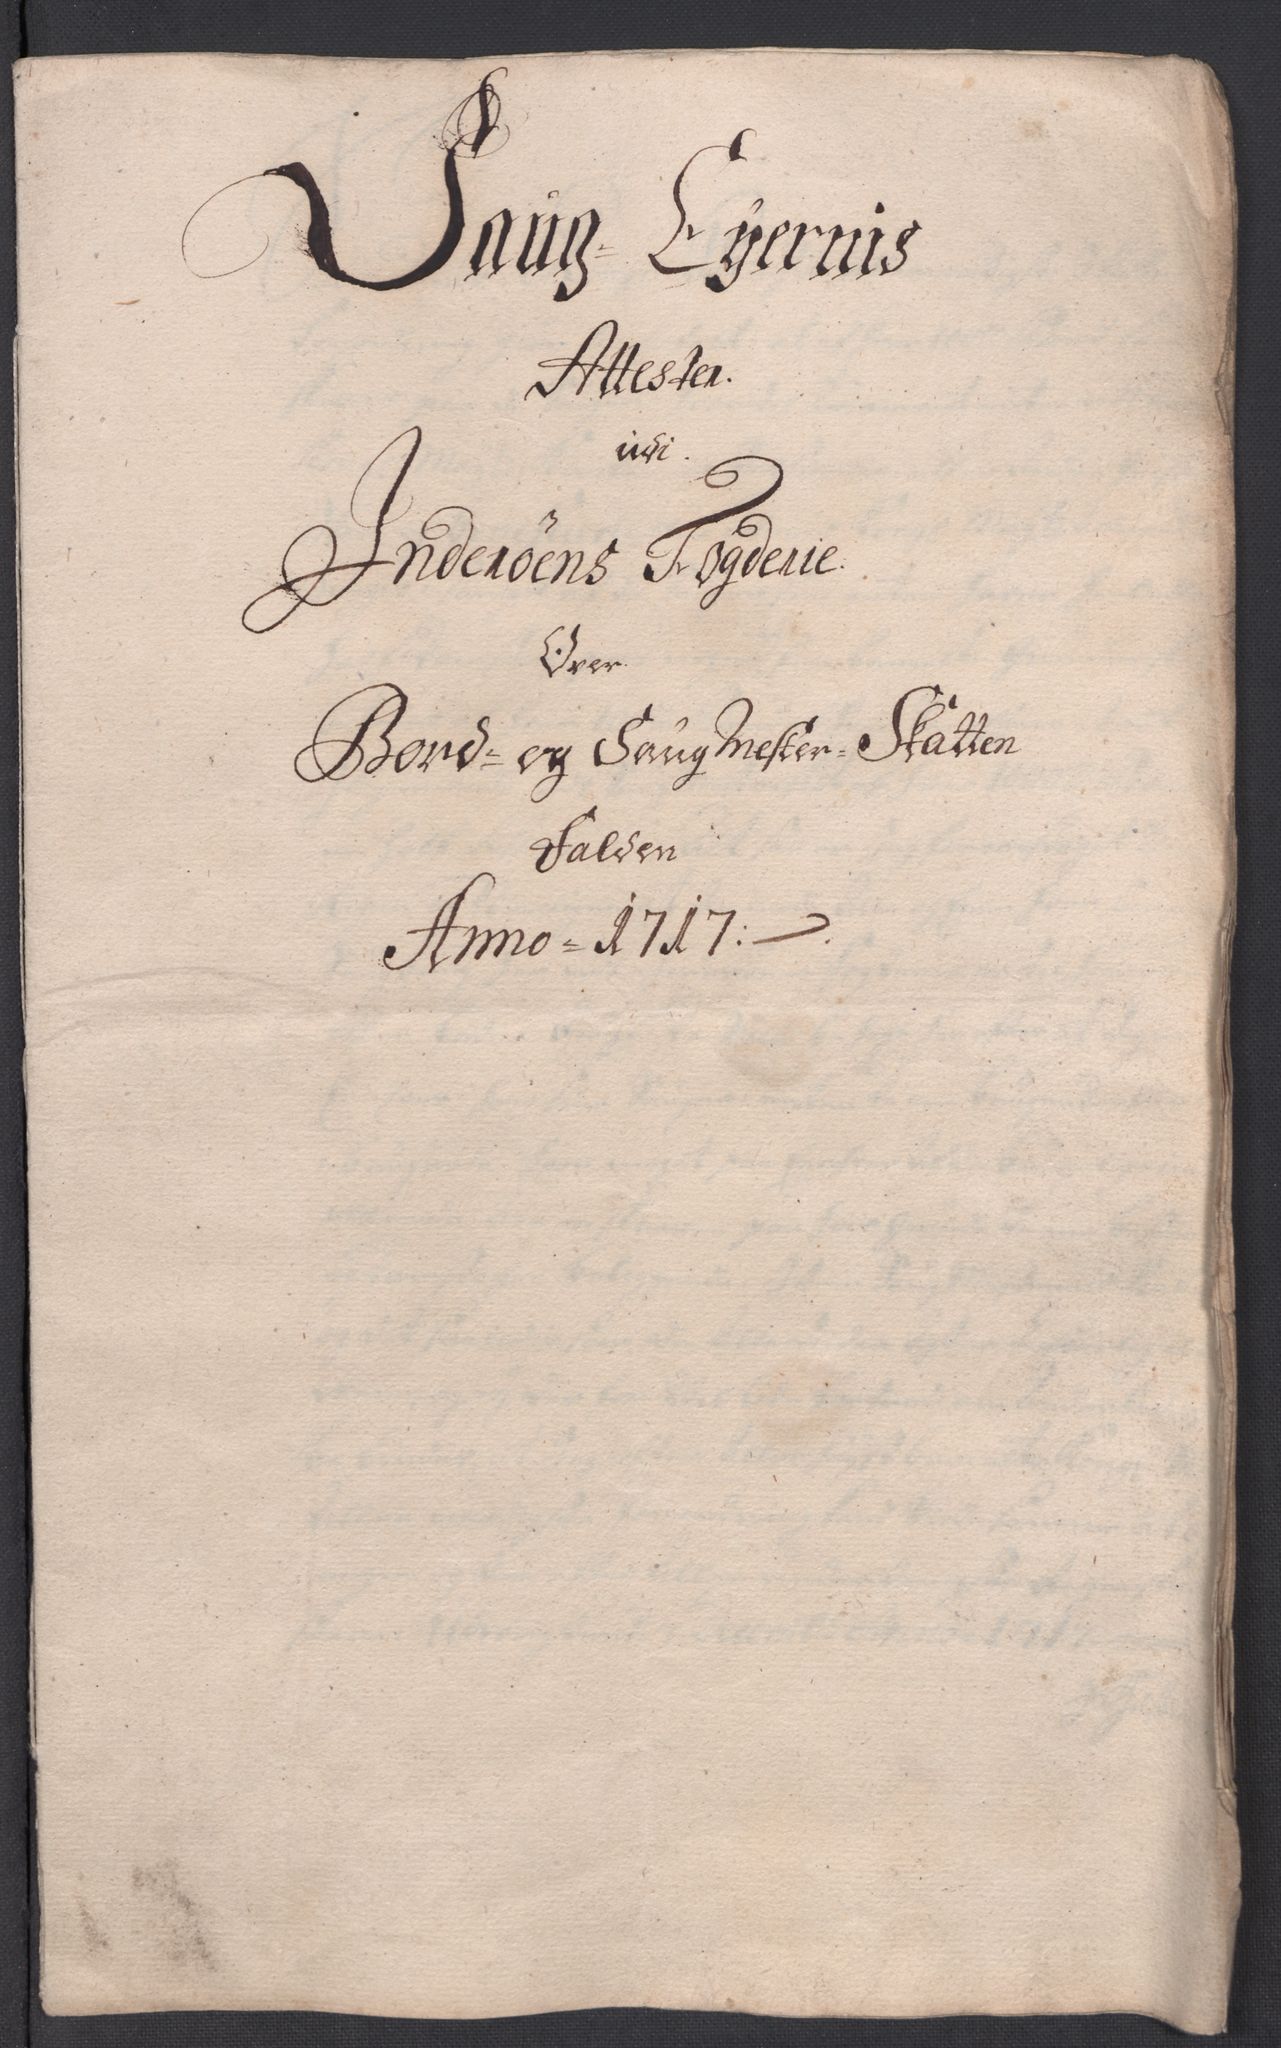 Saug- Eyernis
Attester.
udi.
Inderöens Fogderie.
Over
Bord- og Saugmester- Skatten
Falden
Anno- 1717: